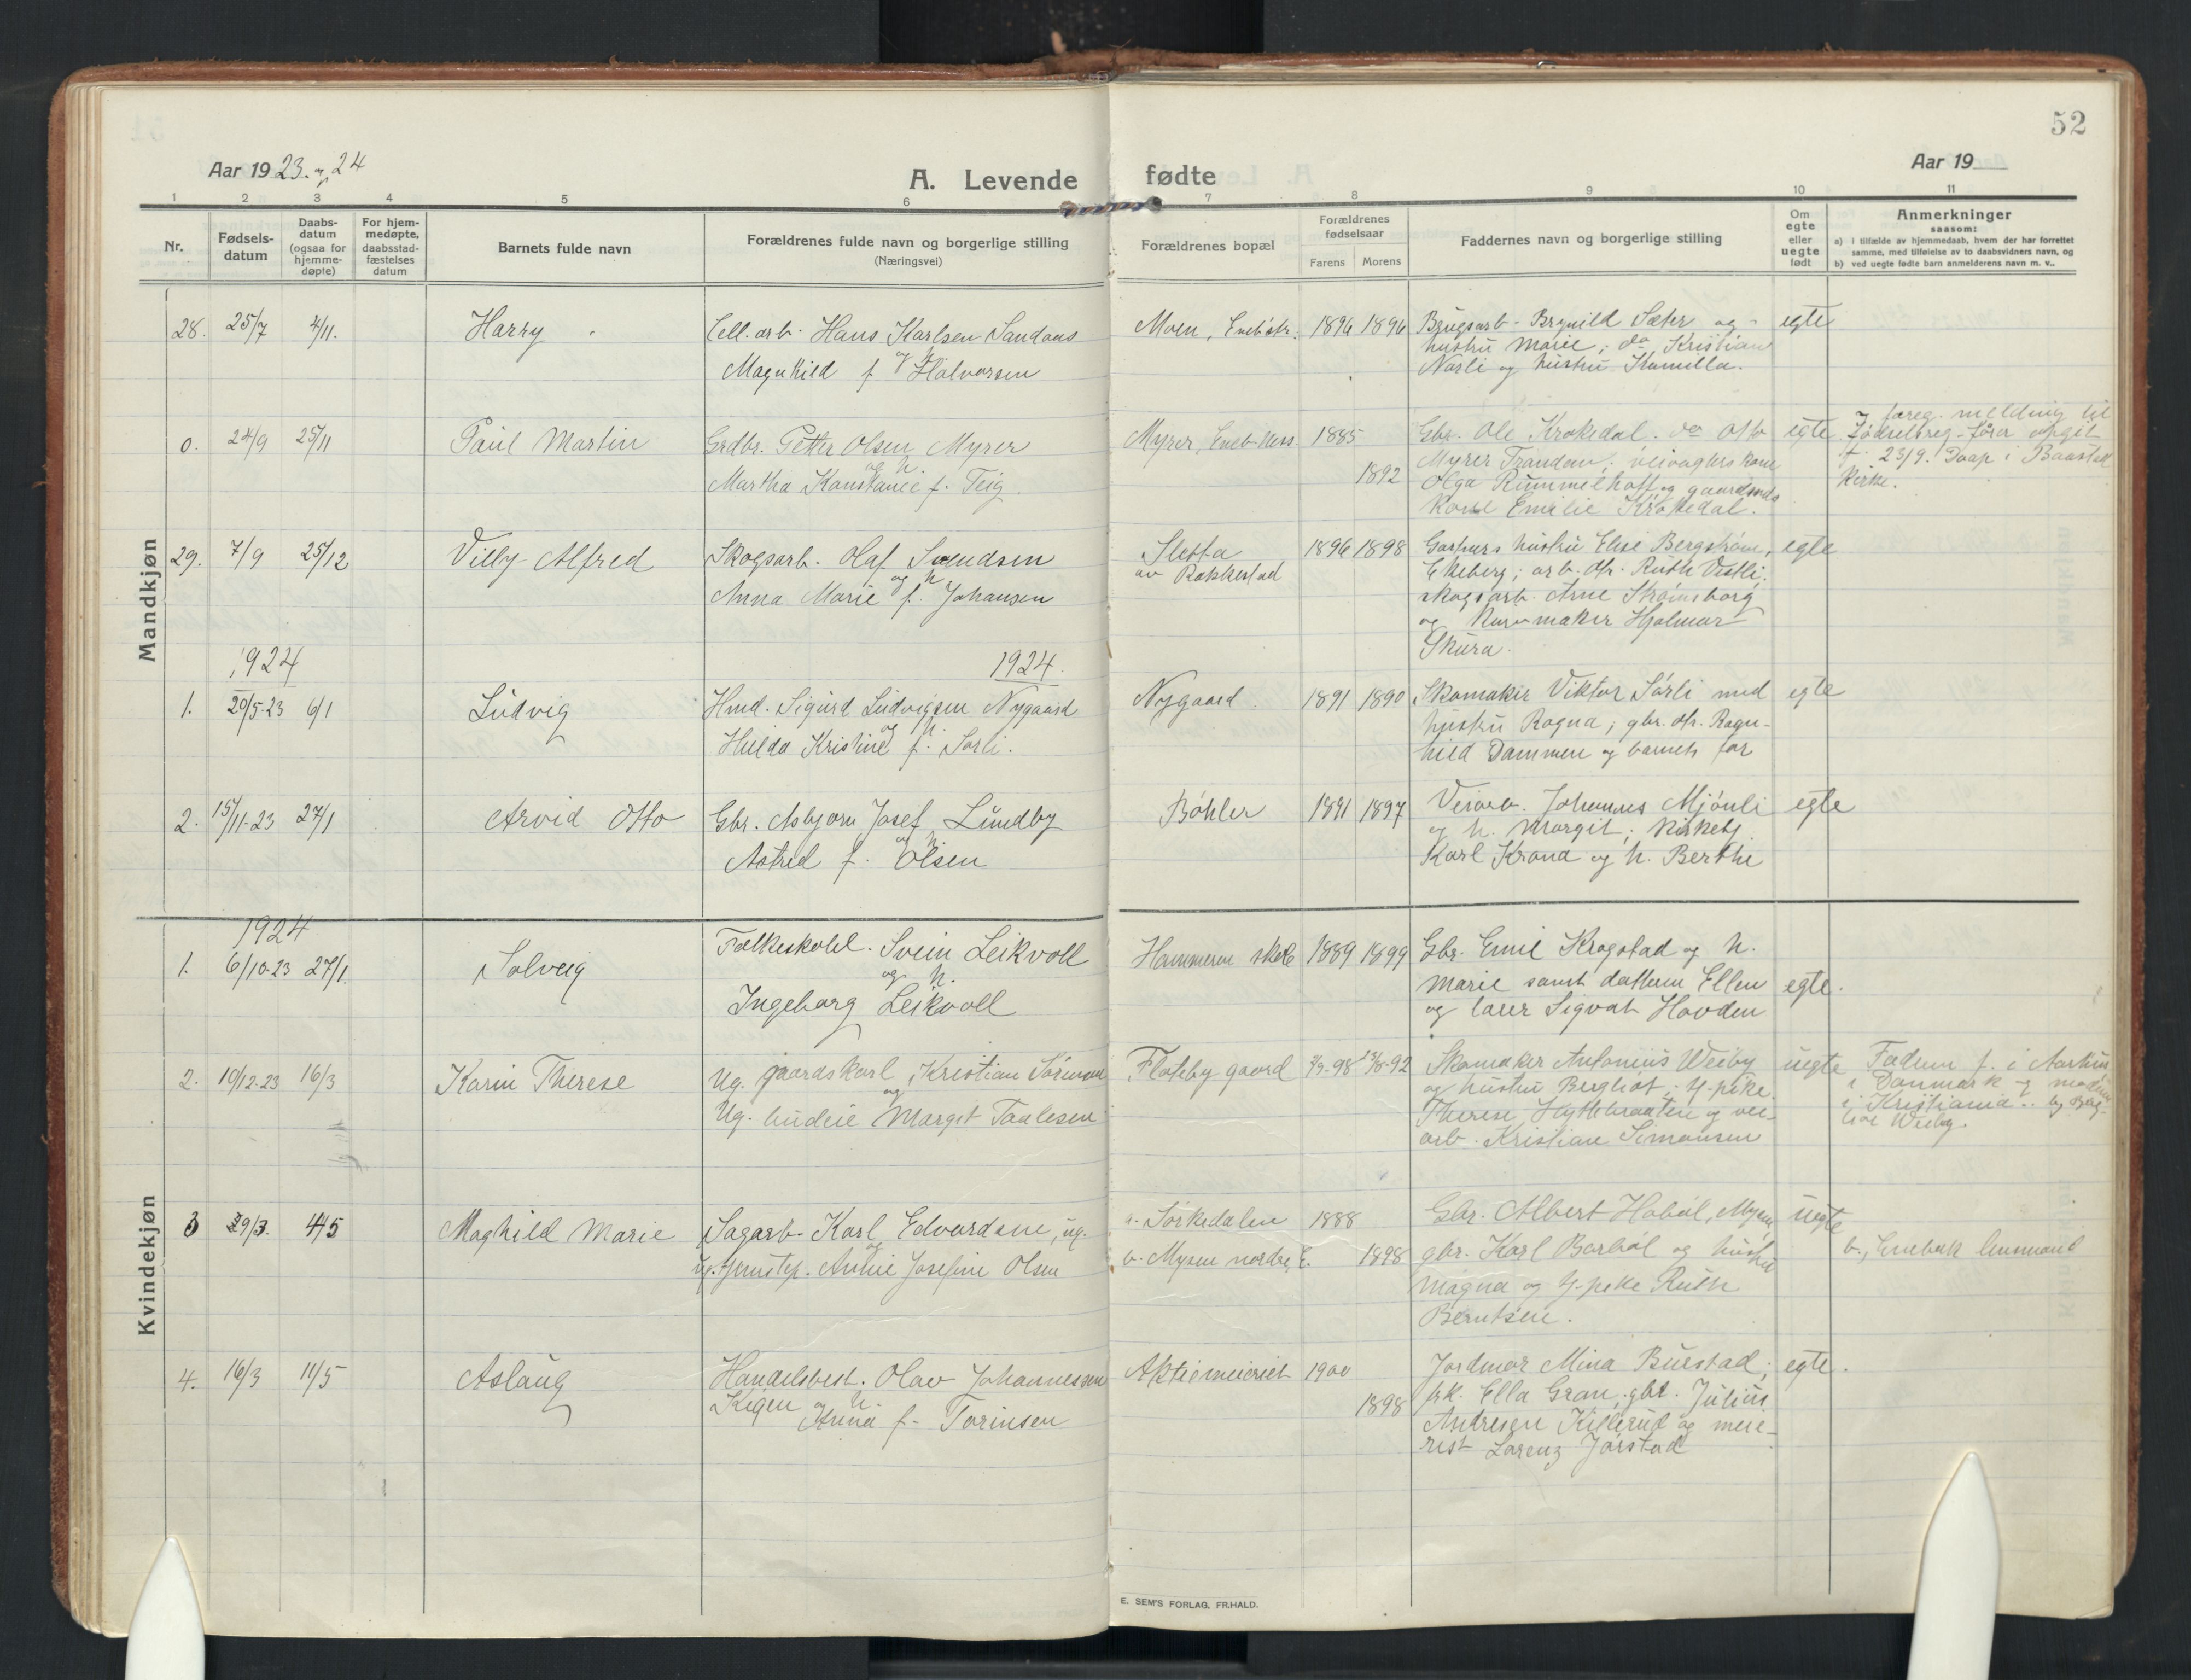 52
Aar 19 23. og 24
Aar 19
A. Levende fødte
1 2 3 4 5 6 7 8 9 10 11
Nr.
Fødsels-
datum
Daabs-
datum
(ogsaa for
hjemme-
døpte)
For hjem-
medøpte,
daabsstad-
fæstelses
datum
Barnets fulde navn
Forældrenes fulde navn og borgerlige stilling
(Næringsvei)
Forældrenes bopæl
Forældrenes
fødselsaar
Farens Morens
Faddernes navn og borgerlige stilling
Om
egte
eller
uegte
født
Anmerkninger
saasom:
a) i tilfælde av hjemmedaab, hvem der har forrettet
samme, med tilføielse av to daabsvidners navn, og
b) ved uegte fødte barn anmelderens navn m. v..
Mandkjøn
28. 25/7 4/11. Harry
Cell. arb. Hans Karlsen Sandaas
og h
Magnhild f Halvorsen
Moen, Eneb.str. 1896 1896
Brugsarb. Brynild Sæter og
hustru Marie; do Kristian
Narli og hustru Kamilla.
egte
0. 24/9 25/11 Paul Martin
Grdbr. Petter Olsen Myrer
og h
Martha Konstance f. Teig
Myrer, Eneb.ness 1885
1892
Gbr. Ole Krokedal. do Otto
Myrer Trandem; veivogters kone
Olga Rummelhoff og gaardmds
kone Emilie Krokedal.
egte
foreg. melding til
Fødselsreg.-fører opgit
f. 23/9. Daap i Baastad
kirke.
29. 7/9 25/12 Villy Alfred
Skogsarb. Olaf Svendsen
og h
Anna Marie f. Johansen
Sletta
av Rakkestad
1896 1898
hustru Elise Bergstrøm,
Ekeberg; arb. dtr. Ruth Vestli,
skogsarb. Arne Strømsborg
og maker Hjalmar
Skura.
egte
1924
1924.
1. 20/5-23 6/1 Ludvig
Hmd. Sigurd Ludvigsen Nygaard
og h.
Hulda Kristine f. Sørli.
Nygaard 1891 1890
Skomaker Viktor Sørli med
hustru Ragna; gbr. dtr. Ragn-
hild Dammen og barnets far
egte
2. 15/11-23 27/1 Arvid Otto
Gbr. Asbjørn Josef Lundby
og h.
Astrid f. Olsen
Bøhler 1891 1897
Veiarb. Johannes Mjønli
og h. Margit; kirketj.
Karl Krona og h. Berthe
egte
Kvindekjøn
1924
1. 6/10-23 27/1. Solveig
Folkeskolel. Svein Leikvoll
og h.
Ingeborg Leikvoll
Hammeren skole 1889 1899
Gbr. Emil Kragstad og h.
Marie samt datteren Ellen
og lærer Sigvat Hovden
egte.
2. 19/12-23 16/3 Karin Therese
Ug. gaardskarl, Kristian Sörensen
og
Ug. budeie Margit Paulesen
Flateby gaard
Skomaker Antonius Weiby
og hustru Bergliot; tj.pike
Therese Hyttebraaten og vei-
arb. Kristian Simonsen
uegte
Faderen f. i Aarhus
i Danmark og moderen
i Kristiania.
Weiby.
3 29/3. 4/5 Maghild Marie
Sagarb. Karl Edvardsen, ug.
og
ug. tjenestep. Annie Josefine Olsen
a. Sørkedalen 1888
b. Mysen nordre, E. 1898
Gbr. Albert Habøl, Mysen,
gbr. Karl Barbøl og hustru
Magna og tj.pike Ruth
Berntsen.
uegte
b., Enebak lensmand
4. 16/3 11/5 Aslaug
Handelsbest. Olav Johannessen
Kigen og h.
Anna f. Torinsen
Aktiemeieriet 1900
1898
Jordmor Mina Burstad;
frk. Ella Gran, gbr. Julius
Andresen Killerud og meie-
rist Lorenz Jørstad
egte.
E. SEM'S FORLAG, FR.HALD.